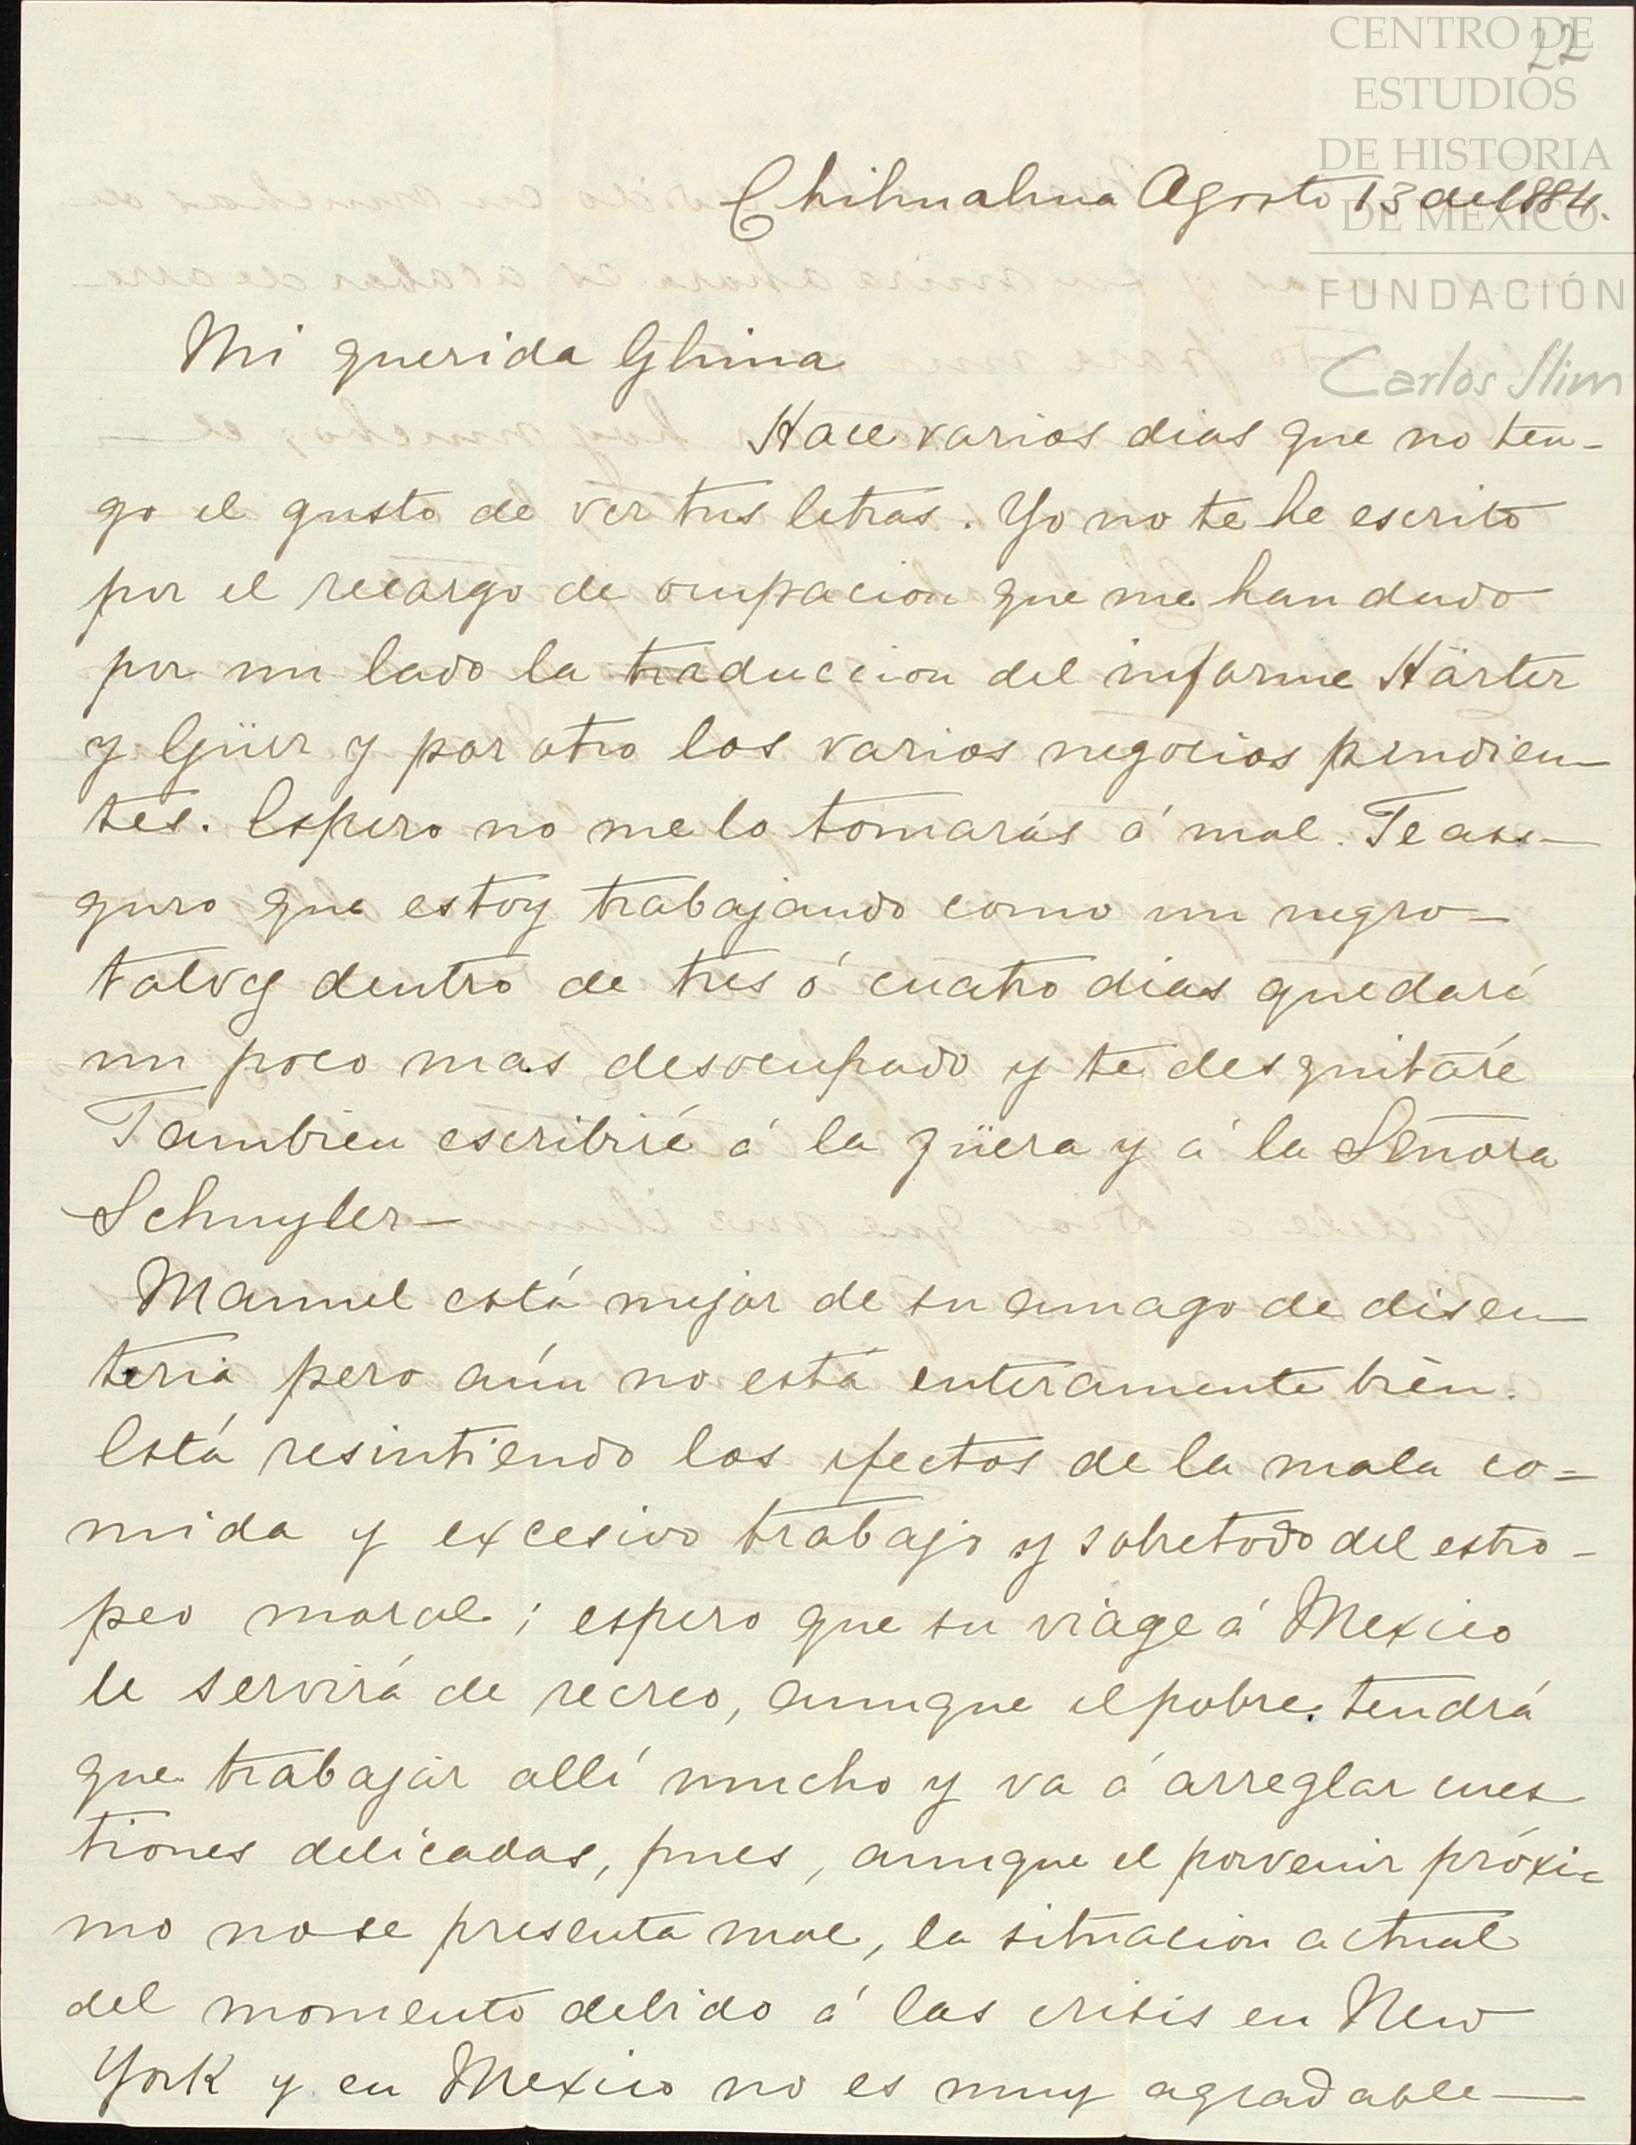 22
CENTRO DE
ESTUDIOS
DE HISTORIA
DE MEXICO
FUNDACIÓN
Carlos Slim
Chihuahua Agosto 13 de 1884.
Mi querida Ghina
Hace varios dias que no ten-
go el gusto de ver tus letras. Yo no te he escrito
por el recargo de ocupacion que me han dado
por un lado la traduccion del informe Härter
y Güer y por otro los varios negocios pendien-
tes. Espero no me lo tomarás á mal. Te ase-
guro que estoy trabajando como un negro-
talvez dentro de tres ó cuatro dias quedaré
un poco mas desocupado y te desquitaré
Tambien escribiré á la güera y á la Señora
Schuyler-
Manuel está mejor de su amago de disen-
teria pero aún no está enteramente bien.
Está resintiendo los efectos de la mala co=
mida y excesivo trabajo y sobretodo del estro-
peo moral; espero que su viage á Mexico
le servirá de recreo, aunque el pobre tendrá
que trabajar allí mucho y va á arreglar cues
tiones delicadas, pues, aunque el porvenir próxi=
mo no se presenta mal, la situacion actual
del momento debido á las crisis en New
York y en Mexico no es muy agradable-